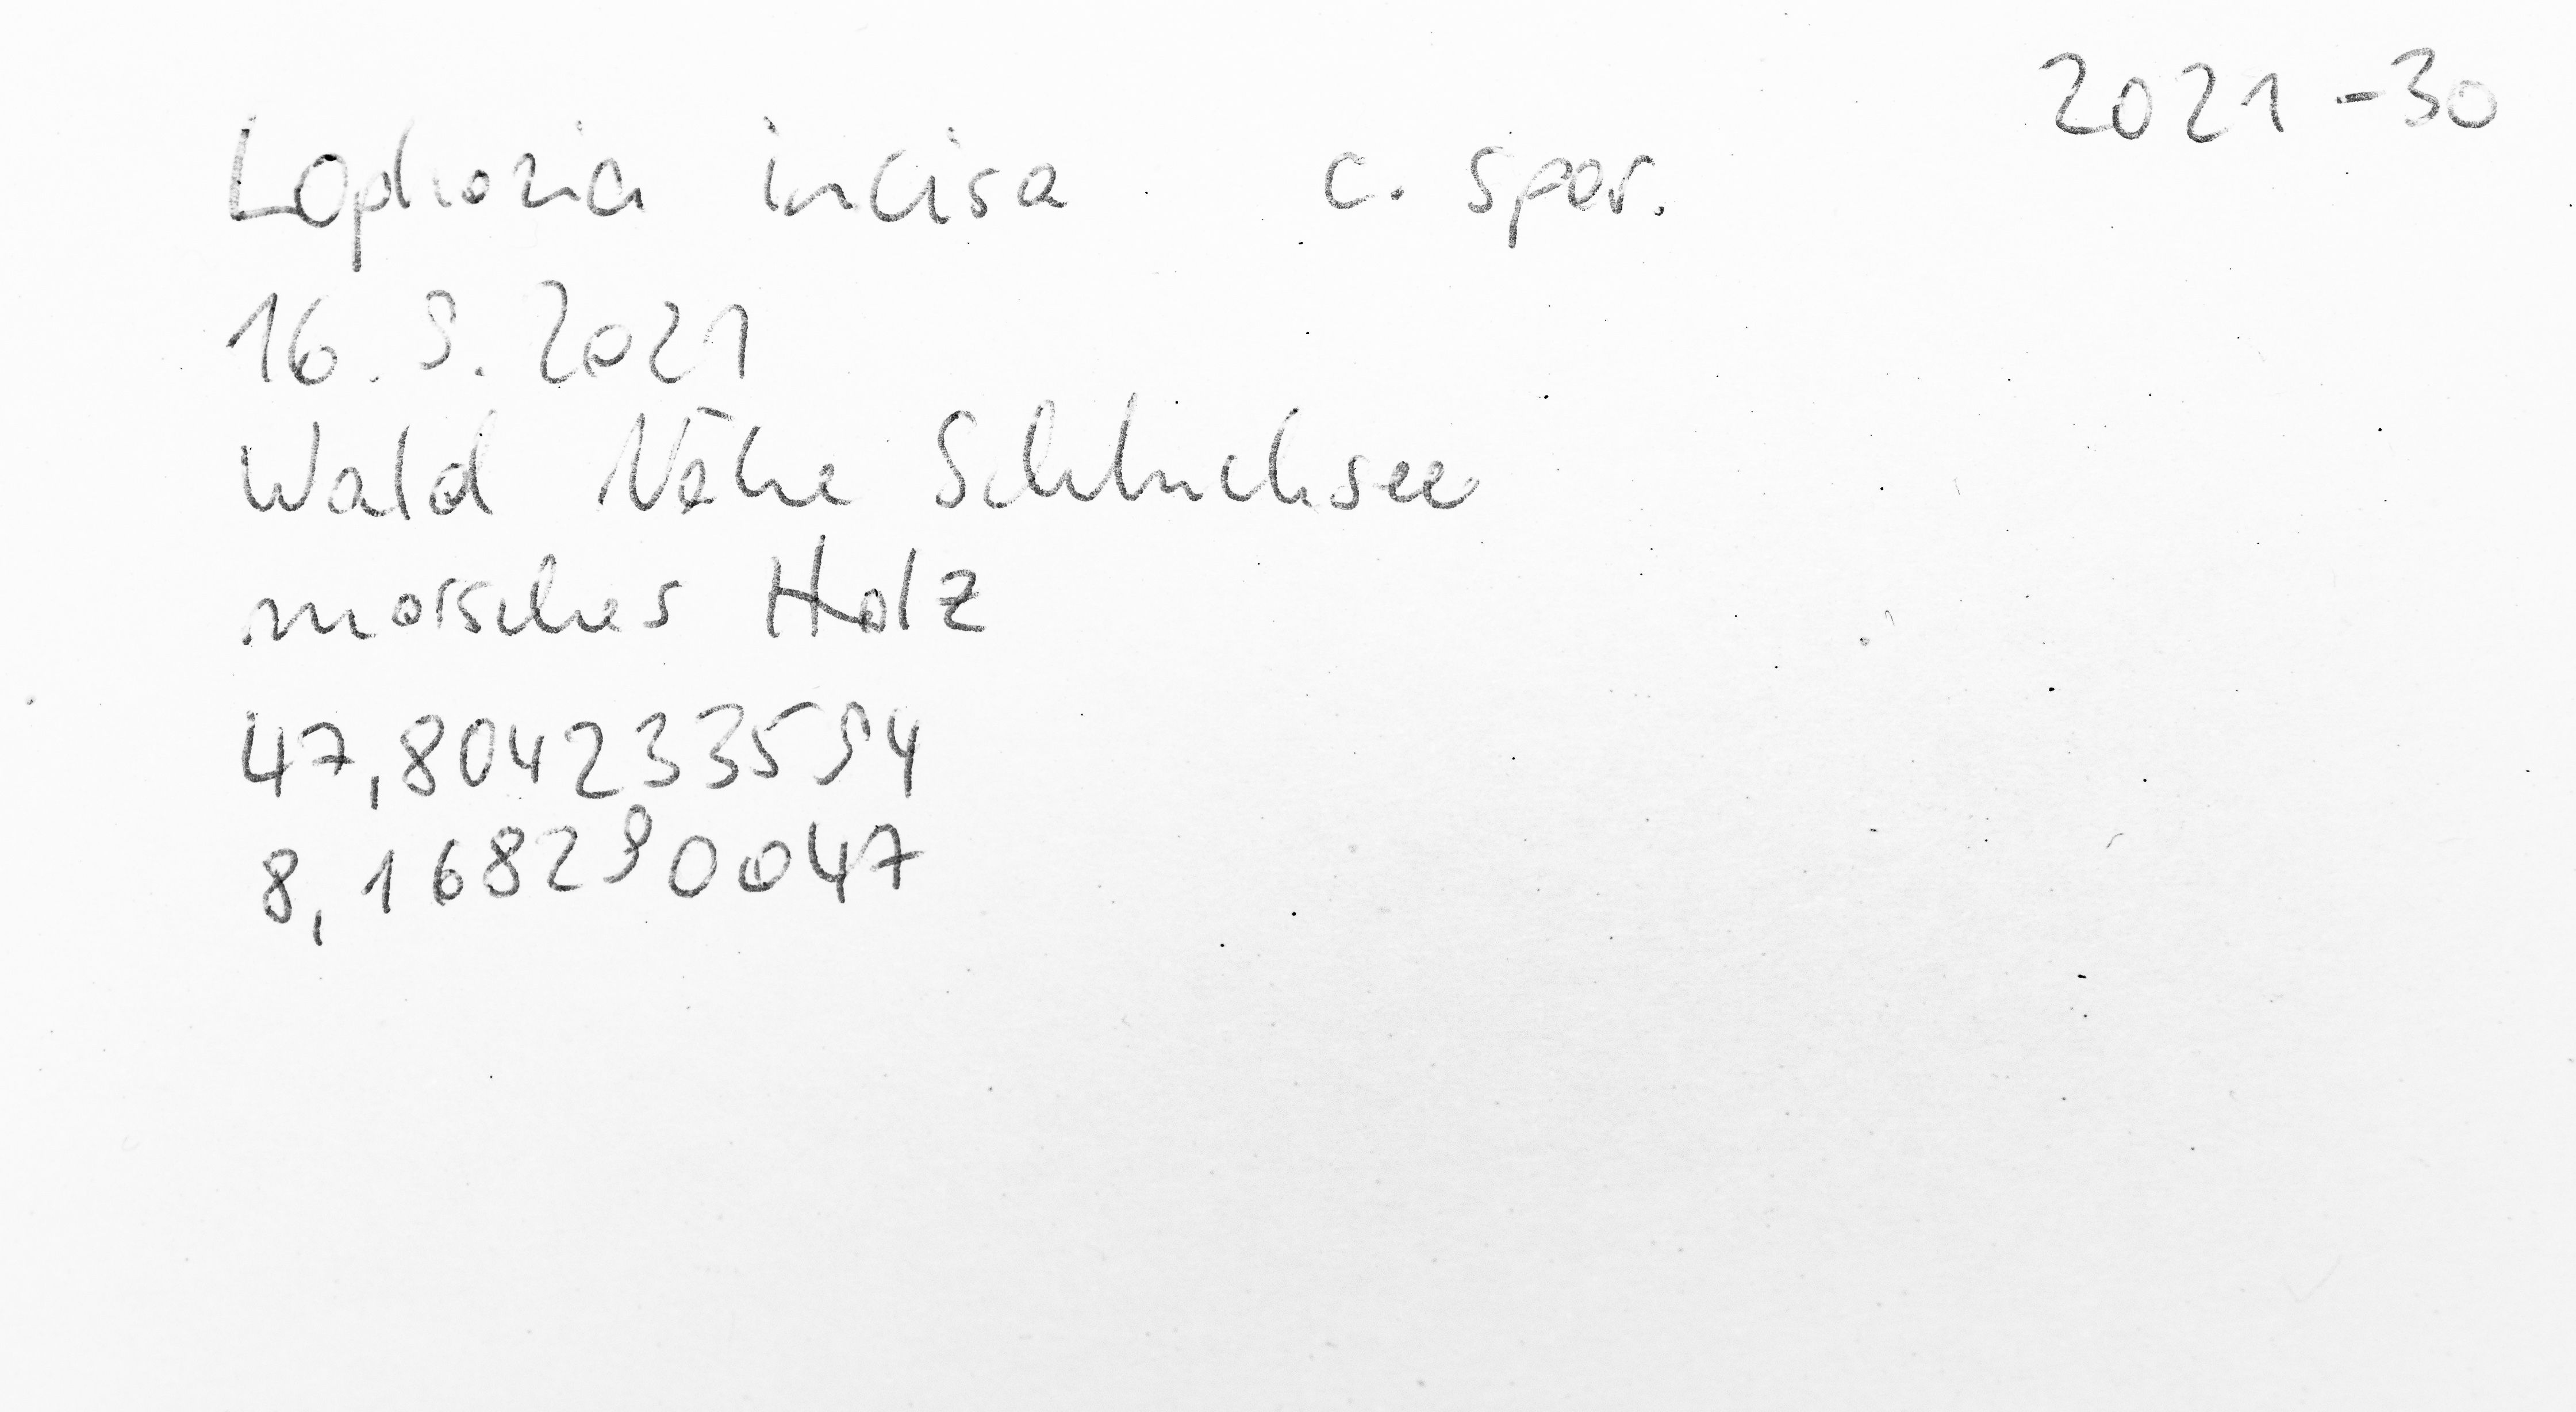 2021-30
Lophozia incisa c. spor.
16.9.2021
Wald Nähe Schluchsee
morsches Holz
47,804233594
8,168290047